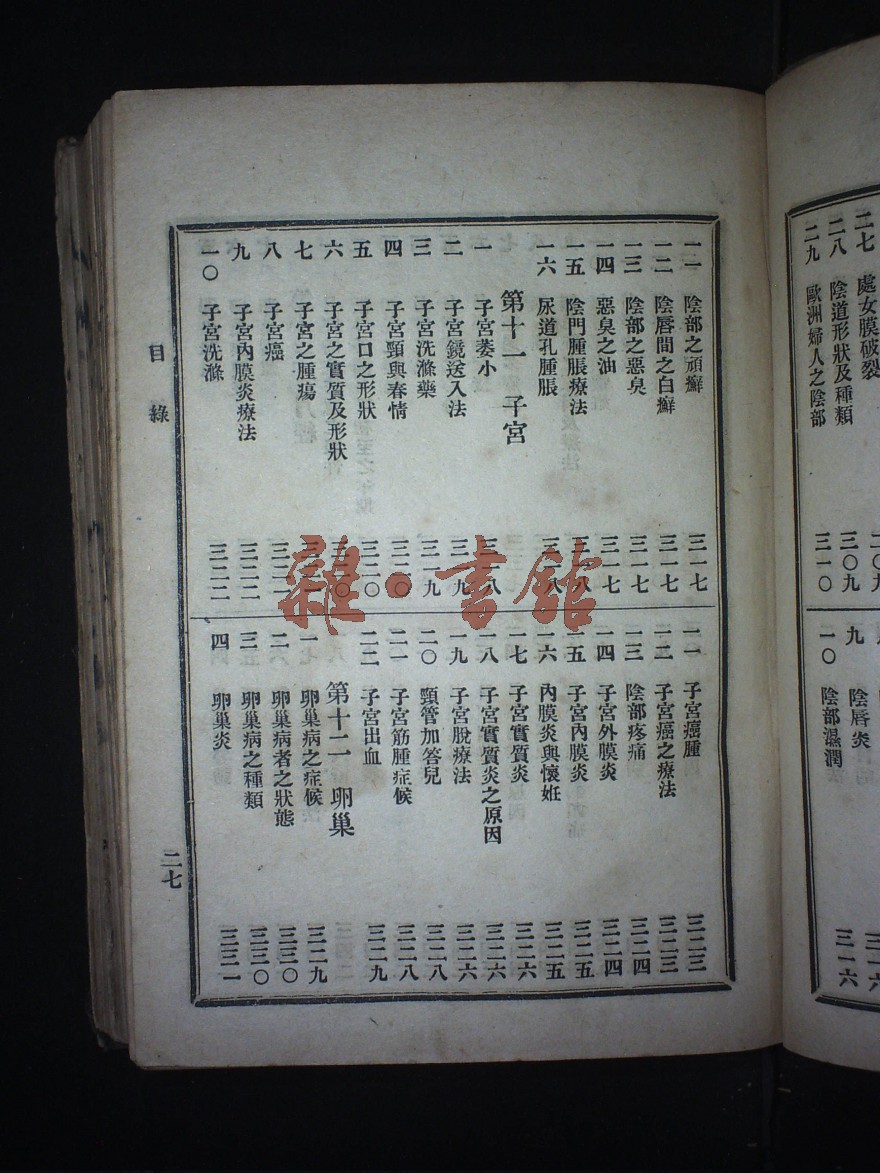 二七 處女膜破裂
二八 陰道形狀及種類 三〇九
二九 歐洲婦人之陰部 三一〇
九 陰唇炎 三一六
一〇 陰部濕潤 三一六
一一 陰部之頑癬 三一七
一二 陰唇間之白癬 三一七
一三 陰部之惡臭 三一七
一四 惡臭之油 三一七
一五 陰門腫脹療法 三一八
一六 尿道孔腫脹 三一八
第十一 子宮
一 子宮萎小 三一八
二 子宮鏡送入法 三一九
三 子宮洗滌藥 三一九
四 子宮頸與春情 三二〇
五 子宮口之形狀 三二〇
六 子宮之實質及形狀 三二〇
七 子宮之腫瘍
八 子宮癌 三二一
九 子宮內膜炎療法 三二二
一〇 子宮洗滌 三二二
一一 子宮癌腫 三二三
一二 子宮癌之療法 三二三
一三 陰部疼痛 三二四
一四 子宮外膜炎 三二四
一五 子宮內膜炎 三二五
一六 內膜炎與懷妊 三二五
一七 子宮實質炎 三二六
一八 子宮實質炎之原因 三二六
一九 子宮脫療法 三二六
二〇 頸管加答兒 三二八
二一 子宮筋腫症候 三二八
二二 子宮出血 三二九
第十二 卵巢
一 卵巢病之症候 三二九
二 卵巢病者之狀態 三三〇
三 卵巢病之種類 三三〇
四 卵巢炎 三三一
目錄
二七
雜·書館